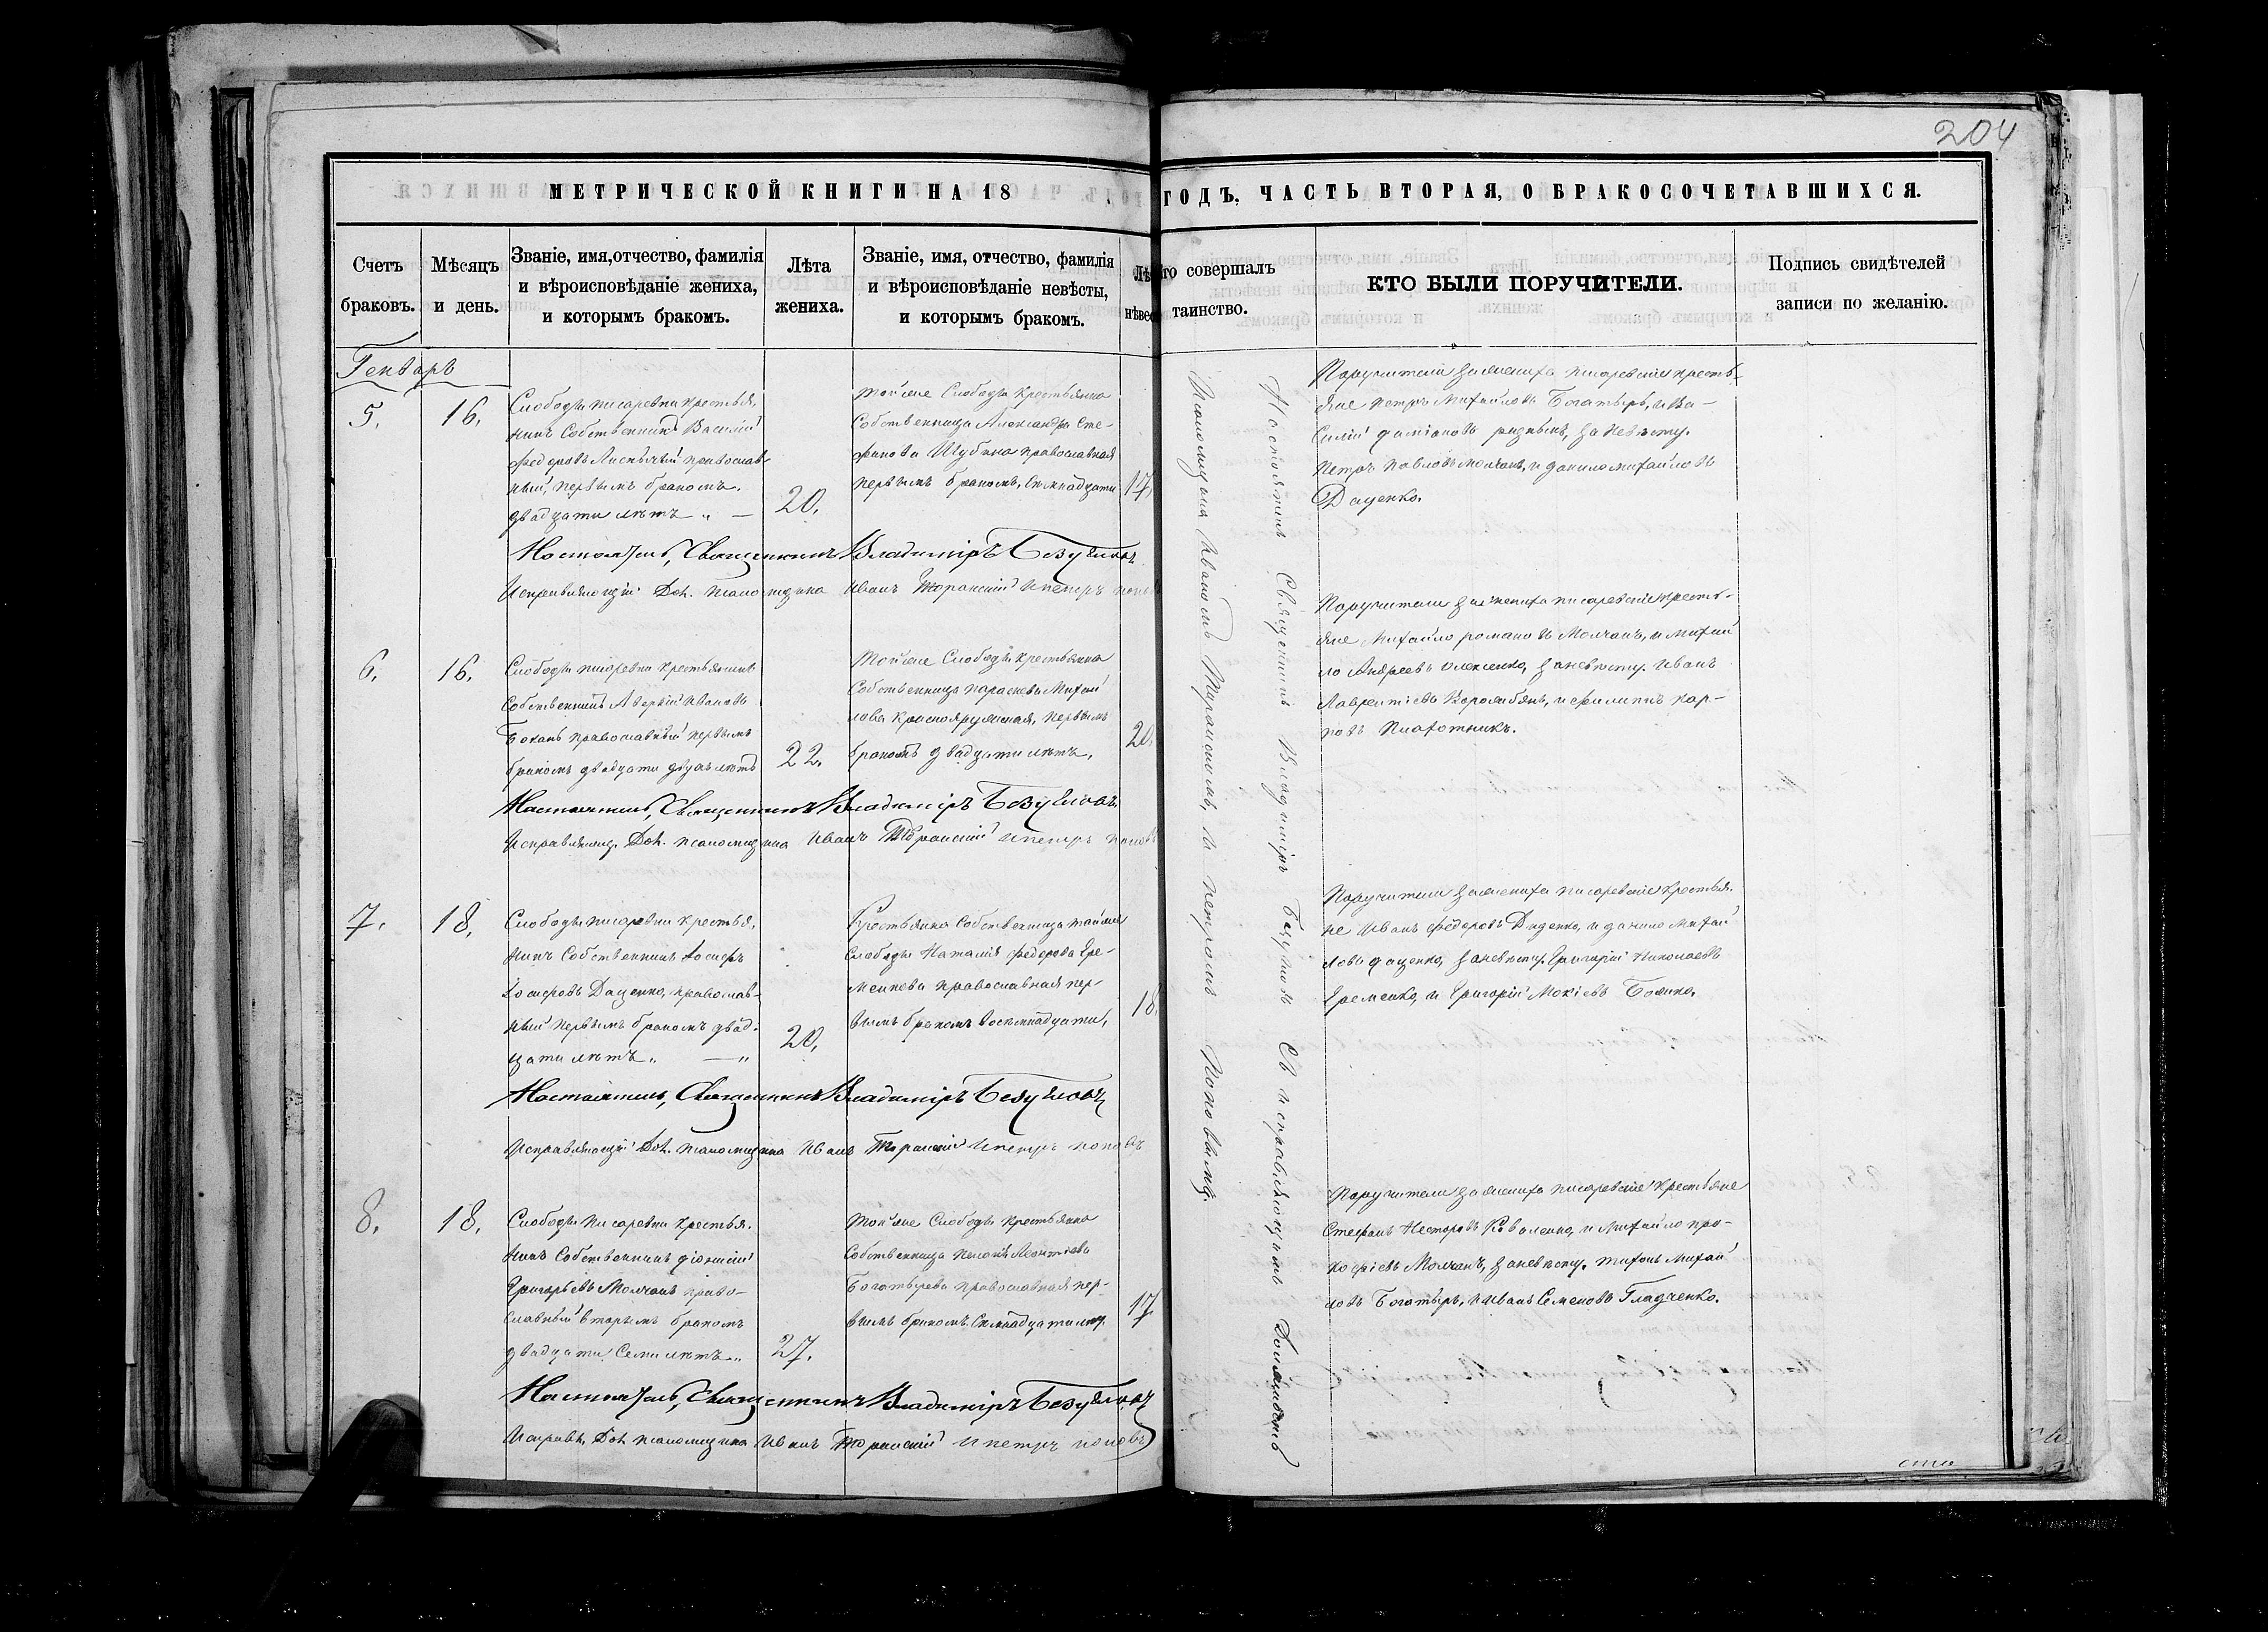 204
МЕТРИЧЕСКОЙ КНИГИ НА 18
ГОДЪ. ЧАСТЬ ВТОРАЯ, О БРАКОСОЧЕТАВШИХСЯ.
Счетъ браковъ.
Мѣсяцъ и день.
Званіе, имя, отчество, фамилія
и вѣроисповѣданіе жениха,
и которымъ бракомъ.
Лѣта
жениха.
Званіе, имя, отчество, фамилія
и вѣроисповѣданіе невѣсты,
и которымъ бракомъ.
совершалъ
таинство.
КТО БЫЛИ ПОРУЧИТЕЛИ.
Подпись свидѣтелей
записи по желанію.
Генварь
5. 16.
Слободы Писаревки крестья-
нинъ Собственникъ Василій
Федоровъ православ-
ный, первымъ бракомъ.
двадцати лѣтъ „ —
20.
тойже Слободы крестьянка
Собственница Александра Сте-
фанова Шубина православная
первымъ бракомъ, Семнадцати
17.
Поручители за жениха писаревскіе кресть-
яне Петръ Михайловъ Богатырь, и Ва-
силій даміановъ за невѣсту.
Петръ Павловъ Молчанъ, и данило михайловъ
Даценко.
Настоятель, Священникъ Владиміръ Безугловъ
Исправляющій Дол. псаломщика Иванъ и Петръ Поповъ
6. 16.
Слободы писаревки крестьянинъ
Собственникъ Аверкій Ивановъ
православный первымъ
бракомъ двадцати двухъ лѣтъ
22.
Тойже Слободы крестьянка
Собственница параскева Михай
лова Краснояружская, первымъ
бракомъ двадцати лѣтъ.
20.
Поручители за жениха писаревскіе кресть-
яне Михайло романовъ Молчанъ, и михай
ло Андреевъ за невѣсту. Иванъ
Лаврентіевъ и филиппъ кар-
повъ Плахотникъ.
Настоятель, Священникъ Владиміръ Безугловъ.
Исправляющ. Дол. псаломщика Иванъ и Петръ Поповъ
7. 18.
Слободы писаревки крестья-
нинъ Собственникъ Іосифъ
Іосифовъ Даценко, православ-
ный первымъ бракомъ двад-
цати лѣтъ „ — „
20.
Крестьянка Собственница тойже
Слободы Наталія федорова Ере-
менкова православная пер-
вымъ бракомъ восемнадцати,
18.
Поручители за жениха писаревскіе крестья-
не Иванъ федоровъ Диденко, и данило Михай
ловъ даценко, за невѣсту. Григорій Николаевъ
Еременко, и Григорій Мокіевъ
Настоятель, Священникъ Владиміръ Безугловъ
Исправляющій Дол. псаломщика Иванъ и Петръ Поповъ
8. 18.
Слободы Писаревки крестья-
нинъ Собственникъ діонисій
Григорьевъ Молчанъ право-
славный вторымъ бракомъ
двадцати Семи лѣтъ „
27.
Тойже Слободы крестьянка
Собственница Леонтіева
Богатырева православная пер-
вымъ бракомъ. Семнадцати лѣтъ.
17
Поручители за жениха писаревскіе крестьяне
Стефанъ Несторовъ Коваленко, и Михайло про-
кофіевъ Молчанъ, за невѣсту. тихонъ Михай
ловъ Богатырь, и Иванъ Семеновъ Гладченко.
Настоятель, Священникъ Владиміръ Безугловъ
Исправл. Дол. псаломщика Иванъ и Петръ Поповъ
Настоятель Священникъ Владиміръ Безугловъ Съ исправляющимъ Должность
Псаломщика Иваномъ и Петромъ Поповымъ.